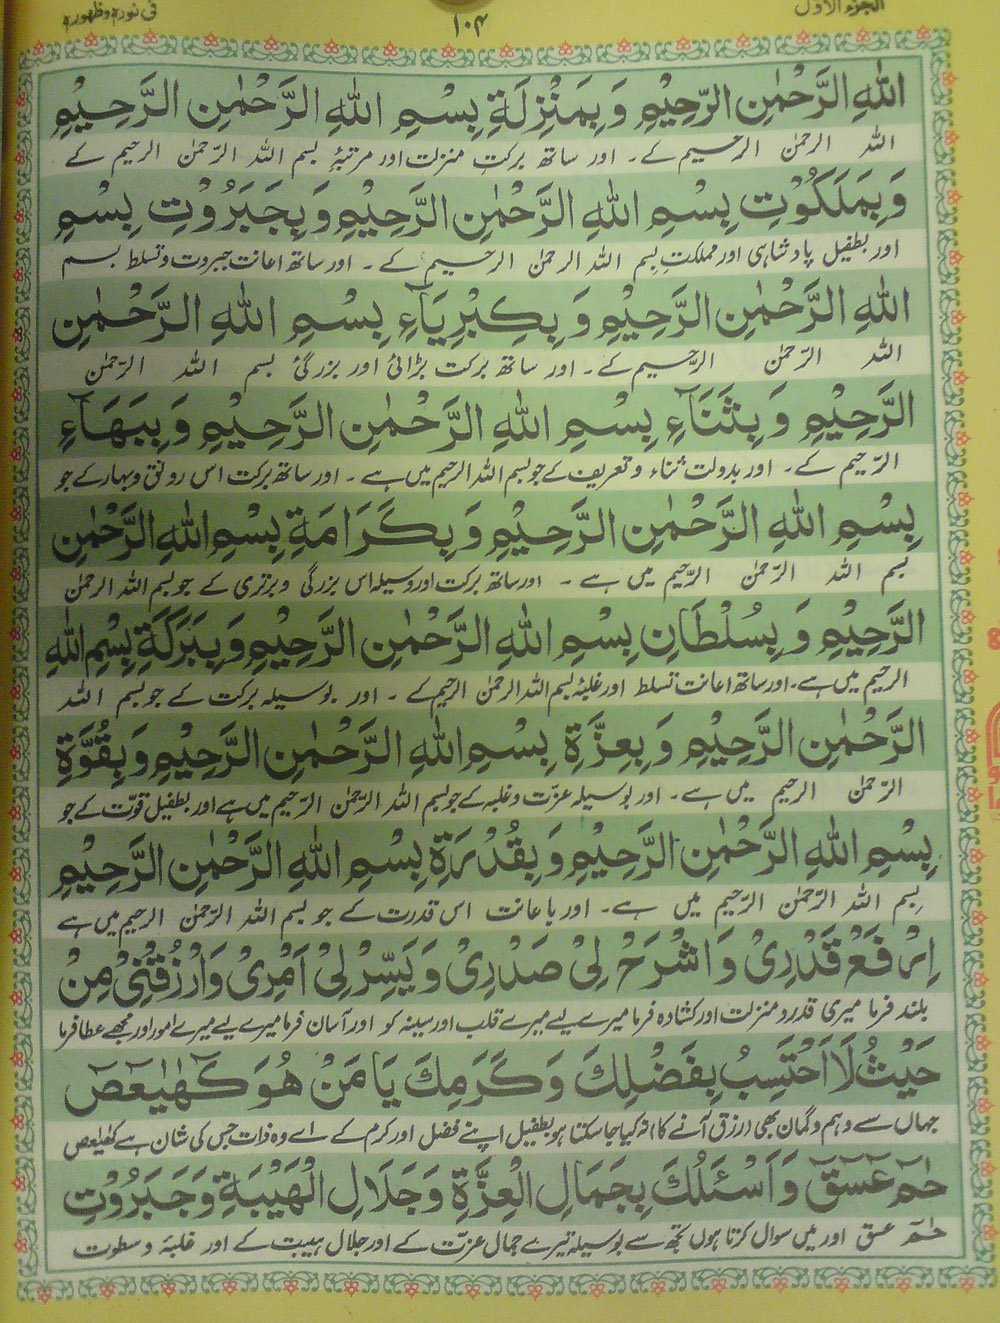 الجزء الاول
۱۰۴
فی نورہ وظہورہ
اللهِ الرَّحْمٰنِ الرَّحِيْمِ وَ بِمَنْزِلَةِ بِسْمِ اللهِ الرَّحْمٰنِ الرَّحِيْمِ
اللہ الرحمٰن الرحیم کے۔ اور ساتھ برکتِ منزلت اور مرتبۂ بسم اللہ الرّحمٰن الرحیم کے
وَبِمَلَكُوْتِ بِسْمِ اللهِ الرَّحْمٰنِ الرَّحِيْمِ وَ بِجَبَرُوْتِ بِسْمِ
اور بطفیل پادشاہی اور مملکتِ بسم اللہ الرحمٰن الرحیم کے ۔ اور ساتھ اعانت جبروت و تسلط بسم
اللهِ الرَّحْمٰنِ الرَّحِيْمِ وَ بِكِبْرِيَآءِ بِسْمِ اللهِ الرَّحْمٰنِ
اللہ الرّحمٰن الرّحیم کے۔ اور ساتھ برکت بڑائی اور بزرگیٔ بسم اللہ الرّحمٰن
الرَّحِيْمِ وَ بِثَنَآءِ بِسْمِ اللهِ الرَّحْمٰنِ الرَّحِيْمِ وَ بِبَهَآءِ
الرّحیم کے۔ اور بدولت ثناء و تعریف کے جو بسم اللہ الرحیم میں ہے ۔ اور ساتھ برکت اس رونق و بہار کے جو
بِسْمِ اللهِ الرَّحْمٰنِ الرَّحِيْمِ وَ بِكَرَامَةِ بِسْمِ اللهِ الرَّحْمٰنِ
بسم اللہ الرّحمٰن الرّحیم میں ہے ۔ اور ساتھ برکت اور وسیلہ اس بزرگی و برتری کے جو بسم اللہ الرحمٰن
الرَّحِيْمِ وَ بِسُلْطَانِ بِسْمِ اللهِ الرَّحْمٰنِ الرَّحِيْمِ وَ بِبَرَكَةِ بِسْمِ اللهِ
الرحیم میں ہے۔ اور ساتھ اعانت تسلط اور غلبۂ بسم اللہ الرحمٰن الرحیم کے ۔ اور بوسیلہ برکت کے جو بسم اللہ
الرَّحْمٰنِ الرَّحِيْمِ وَ بِعِزَّةِ بِسْمِ اللهِ الرَّحْمٰنِ الرَّحِيْمِ وَ بِقُوَّةِ
الرّحمٰن الرحیم میں ہے۔ اور بوسیلہ عزّت و غلبہ کے جو بسم اللہ الرّحمٰن الرّحیم میں ہے اور بطفیل قوّت کے جو
بِسْمِ اللهِ الرَّحْمٰنِ الرَّحِيْمِ وَ بِقُدْرَةِ بِسْمِ اللهِ الرَّحْمٰنِ الرَّحِيْمِ
بِسم اللہ الرّحمٰن الرّحیم میں ہے۔ اور با عانت اس قدرت کے جو بسم اللہ الرّحمٰن الرحیم میں ہے
اِرْفَعْ قَدْرِىْ وَ اشْرَحْ لِىْ صَدْرِىْ وَ يَسِّرْ لِىْ اَمْرِىْ وَ ارْزُقْنِىْ مِنْ
بلند فرما میری قدر و منزلت اور کشادہ فرما میرے لیے میرے قلب اور سینہ کو اور آسان فرما میرے لیے میرے امور اور مجھے عطا فرما
حَيْثُ لَا اَحْتَسِبُ بِفَضْلِكَ وَ كَرَمِكَ يَا مَنْ هُوَ كٓهٰيٰعٓصٓ
جہاں سے وہم و گمان بھی (رزق آنے کا) نہ کیا جا سکتا ہو بطفیل اپنے فضل اور کرم کے اے وہ ذات جس کی شان ہے کٓھٰیٰعٓصٓ
حٰمٓ عٓسٓقٓ وَ اَسْئَلُكَ بِجَمَالِ الْعِزَّةِ وَ جَلَالِ الْهَيْبَةِ وَ جَبَرُوْتِ
حٰمٓ عسق اور میں سوال کرتا ہوں تجھ سے بوسیلہ تیرے جمال عزّت کے اور جلال ہیبت کے اور غلبۂ و سطوت